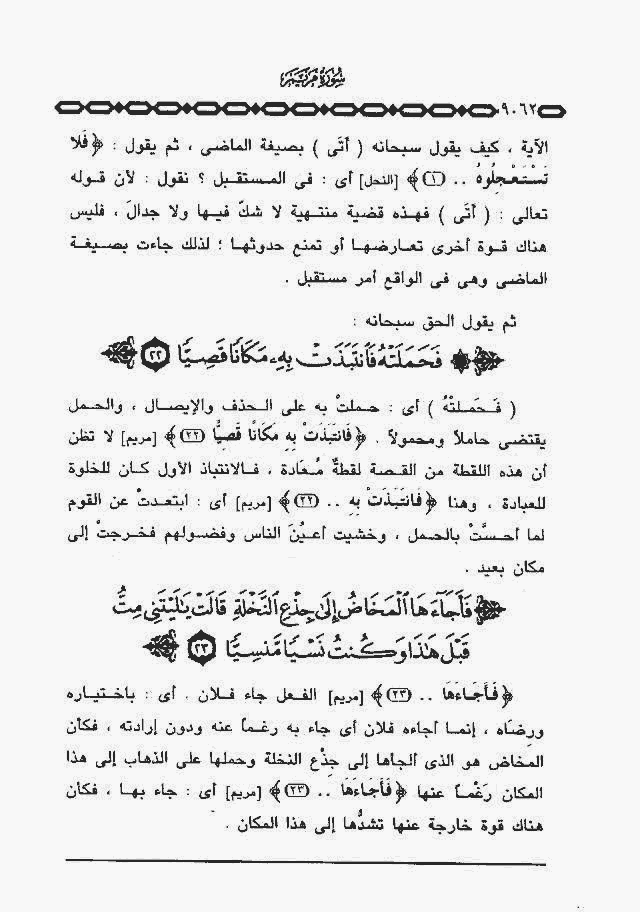 سُورَةُ مَرْيَمَ
٩٠٦٢
الآية ، كيف يقول سبحانه ( أتَى ) بصيغة الماضى ، ثم يقول : ﴿ فَلا
تَسْتَعْجِلُوهُ .. (١) ﴾ [النحل] أى : فى المستقبل ؟ نقول : لأن قوله
تعالى : ( أَتَى ) فهذه قضية منتهية لا شكّ فيها ولا جدالَ ، فليس
هناك قوة أخرى تعارضها أو تمنع حدوثها ؛ لذلك جاءت بصيغة
الماضى وهى فى الواقع أمر مستقبل .
ثم يقول الحق سبحانه :
﴿ فَحَمَلَتْهُ فَانتَبَذَتْ بِهِۦ مَكَانًا قَصِيًّا ٢٢ ﴾
( فَحَمَلتْهُ ) أى : حملتْ به على الحذف والإيصال ، والحمل
يقتضى حاملاً ومحمولاً . ﴿ فَانتَبَذَتْ بِهِ مَكَانًا قَصِيًّا (٢٢) ﴾ [مريم] لا تظن
أن هذه اللقطة من القصة لقطةٌ مُعَادة ، فالانتباذ الأول كان للخلوة
للعبادة ، وهنا ﴿ فَانتَبَذَتْ بِهِ .. (٢٢) ﴾ [مريم] أى : ابتعدتْ عن القوم
لما أحسَّتْ بالحمل ، وخشيت أعيُنَ الناس وفضولهم فخرجتْ إلى
مكان بعيد .
﴿ فَأَجَآءَهَا ٱلْمَخَاضُ إِلَىٰ جِذْعِ ٱلنَّخْلَةِ قَالَتْ يَٰلَيْتَنِى مِتُّ
قَبْلَ هَٰذَا وَكُنتُ نَسْيًا مَّنسِيًّا ٢٣ ﴾
﴿ فَأَجَاءَهَا .. (٢٣) ﴾ [مريم] الفعل جاء فلان . أى : باختياره
ورضاه ، إنما أجاءه فلان أى جاء به رغماً عنه ودون إرادته ، فكأن
المخاض هو الذى ألجأها إلى جِذْع النخلة وحملها على الذهاب إلى هذا
المكان رَغْماً عنها ﴿ فَأَجَاءَهَا .. (٢٣) ﴾ [مريم] أى : جاء بها ، فكأن
هناك قوة خارجة عنها تشدُّها إلى هذا المكان .